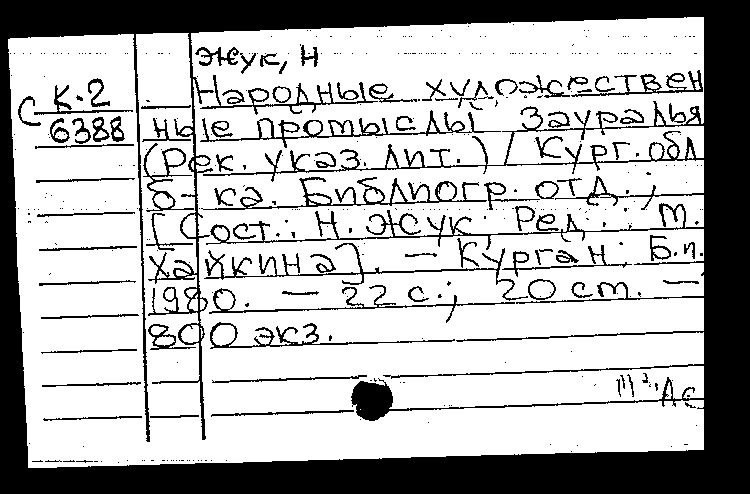 Жук, Н
С К.2
6388
Народные художествен
ные промыслы Зауралья
(Рек. указ. лит.) / Кург. обл
б-ка. Библиогр. отд.;
[Сост.: Н. Жук; Ред.: М.
Хайкина]. — Курган: Б.и.
1980. — 22 с.; 20 cm. —
800 экз.